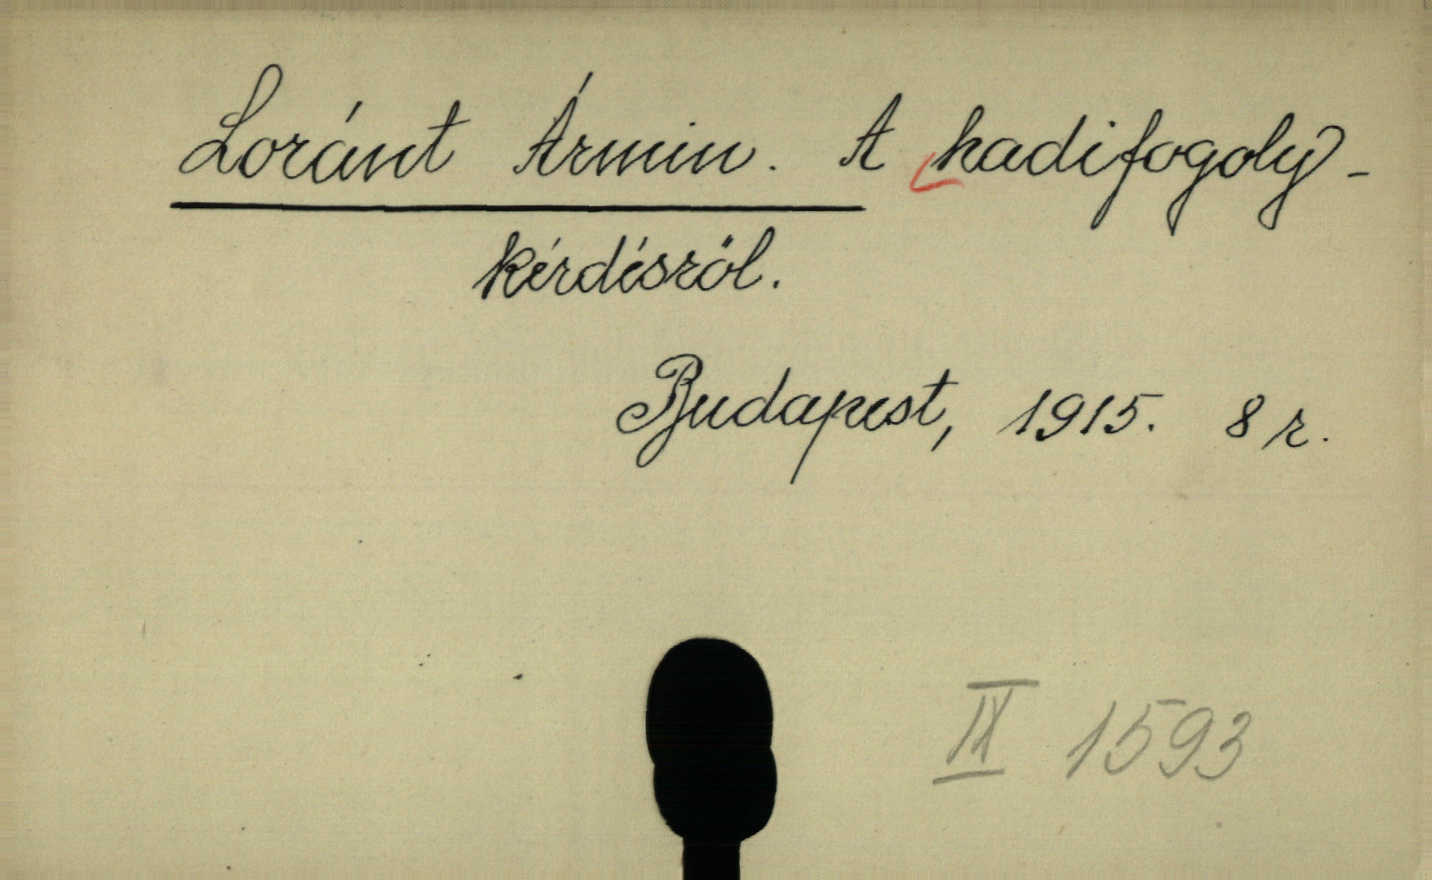 Loránt Ármin. A hadifogoly-
kérdésről.
Budapest, 1915. 8 r.
IX 1593